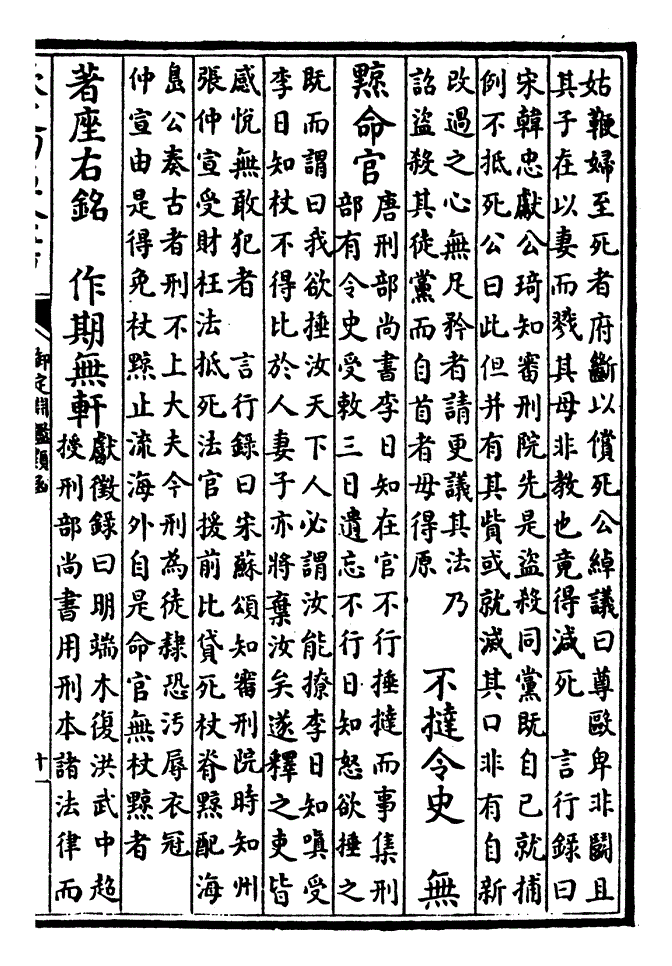 姑鞭婦至死者府斷以償死公綽議曰尊毆卑非鬭且
其子在以妻而戮其母非教也竟得減死　言行錄曰
宋韓忠獻公琦知審刑院先是盜殺同黨既自已就捕
例不抵死公曰此但并有其貲或就滅其口非有自新
改過之心無足矜者請更議其法乃
詔盜殺其徒黨而自首者毋得原
不撻令史　無
黥命官
唐刑部尚書李日知在官不行捶撻而事集刑
部有令史受敕三日遺忘不行日知怒欲捶之
既而謂曰我欲捶汝天下人必謂汝能撩李日知嗔受
李日知杖不得比於人妻子亦將棄汝矣遂釋之吏皆
感悅無敢犯者　言行錄曰宋蘇頌知審刑院時知州
張仲宣受財枉法抵死法官援前比貸死杖脊黥配海
島公奏古者刑不上大夫今刑為徒隸恐汚辱衣冠
仲宣由是得免杖黥止流海外自是命官無杖黥者
著座右銘　作期無軒
獻徵錄曰明端木復洪武中超
授刑部尚書用刑本諸法律而
御定淵鑑類函
十